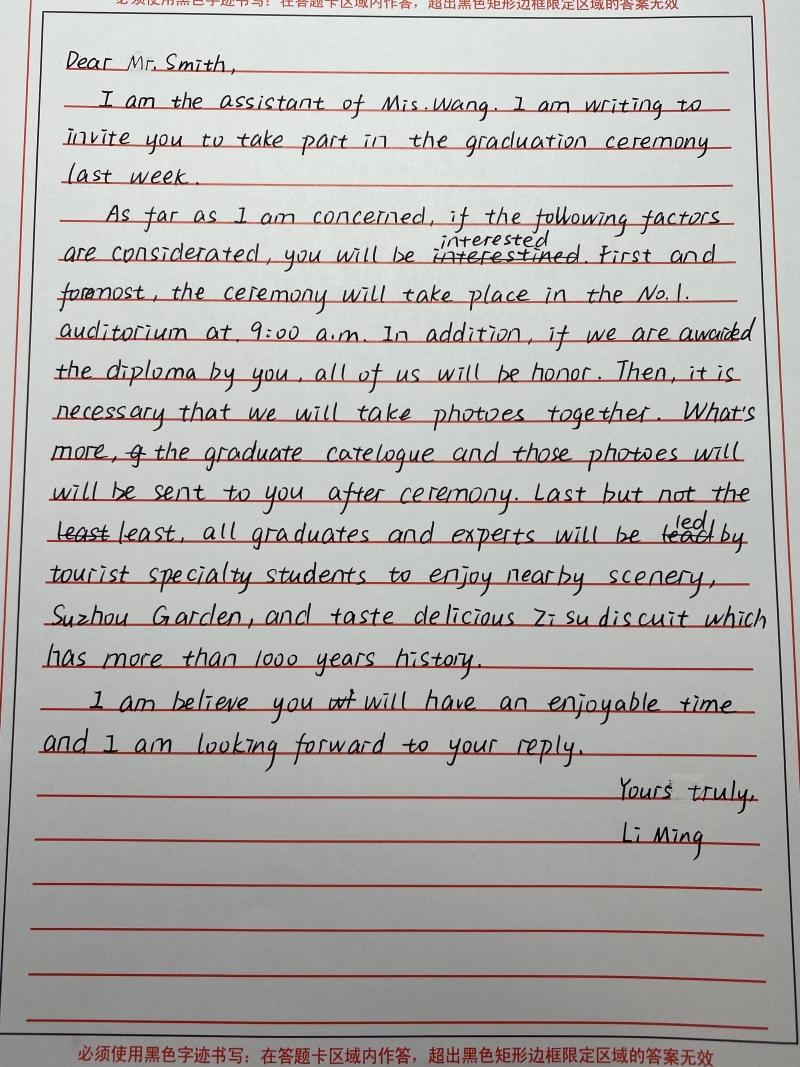 必须使用黑色字迹书写：在答题卡区域内作答，超出黑色矩形边框限定区域的答案无效
Dear Mr. Smith,
I am the assistant of Mis. Wang. I am writing to
invite you to take part in the graduation ceremony
last week.
As far as I am concerned, if the following factors
interested
are considerated, you will be interestined. First and
foremost, the ceremony will take place in the No.1.
auditorium at. 9:00 a.m. In addition, if we are awarded
the diploma by you, all of us will be honor. Then, it is
necessary that we will take photoes together. What's
more, g the graduate catelogue and those photoes will
will be sent to you after ceremony. Last but not the
led
least least, all graduates and experts will be lead by
tourist specialty students to enjoy nearby scenery,
Suzhou Garden, and taste delicious Zi su discuit which
has more than 1000 years history.
I am believe you wt will have an enjoyable time
and I am looking forward to your reply.
Yours truly,
Li Ming
必须使用黑色字迹书写：在答题卡区域内作答，超出黑色矩形边框限定区域的答案无效